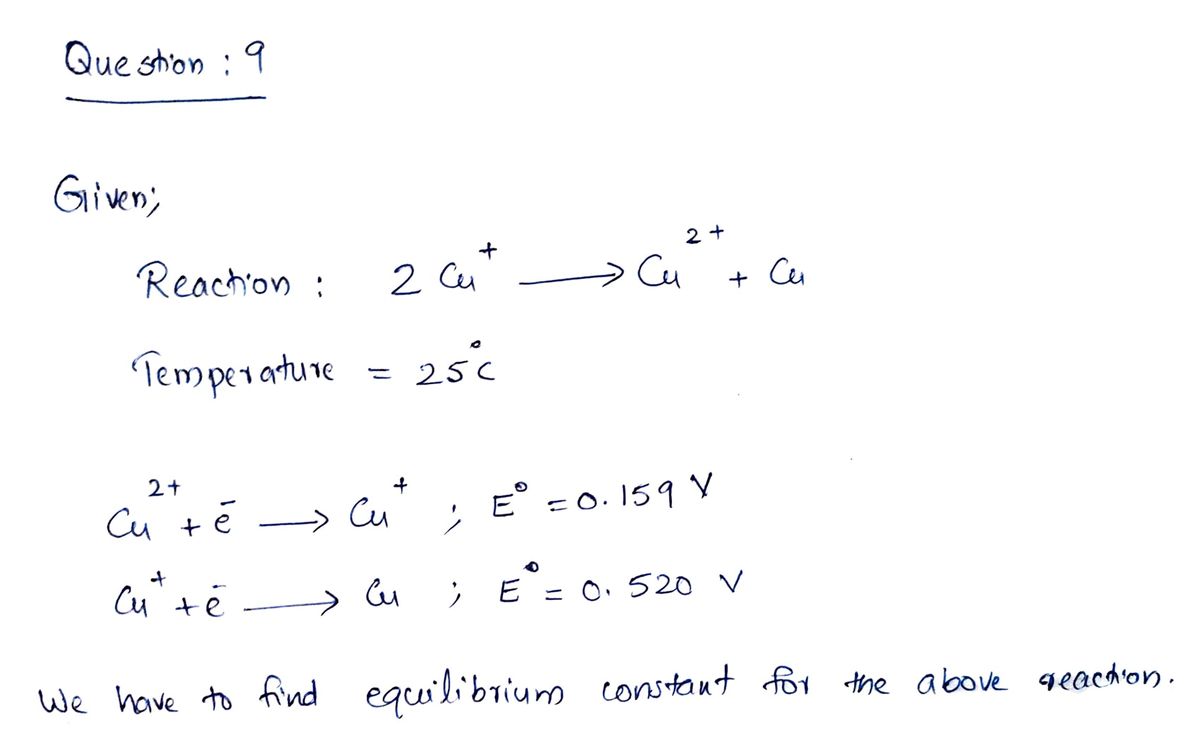 Question : 9
Given;
Reaction : 2 Cu⁺ ⟶ Cu²⁺ + Cu
Temperature = 25°C
Cu²⁺ + ē ⟶ Cu⁺ ; E° = 0.159 V
Cu⁺ + ē ⟶ Cu ; E° = 0.520 V
We have to find equilibrium constant for the above reaction.